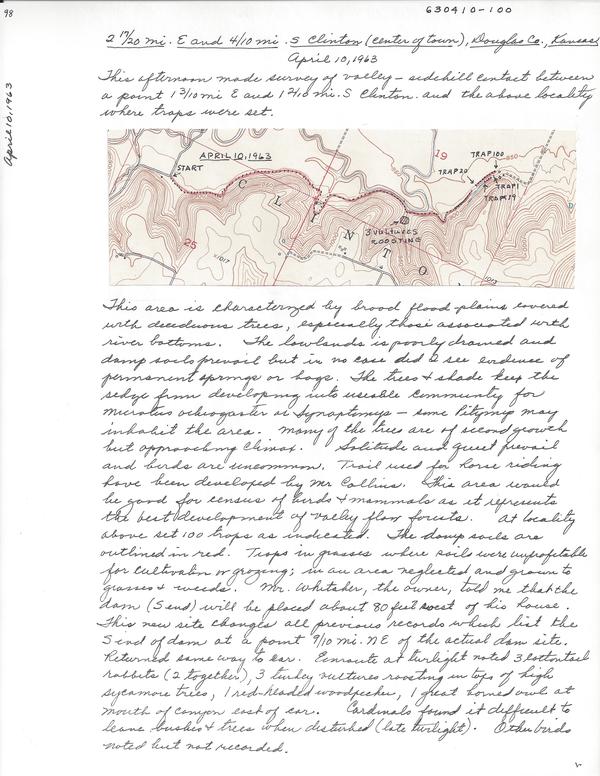 98
630410-100
April 10, 1963
2 17/20 mi. E and 4/10 mi. S Clinton (center of town), Douglas Co., Kansas
April 10, 1963
This afternoon made survey of valley - sidehill contact between
a point 1 3/10 mi E and 1 2/10 mi. S Clinton and the above locality
where traps were set.
APRIL 10, 1963
START
19
TRAP 100
850
TRAP 20
TRAP 1
TRAP 19
3 VULTURES
ROOSTING
25
1017
1013
CLINTO
This area is characterized by broad flood plains covered
with deciduous trees, especially those associated with
river bottoms. The lowlands is poorly drained and
damp soils prevail but in no case did I see evidence of
permanent springs or bogs. The trees + shade keep the
sedge from developing into useable community for
Microtus ochrogaster or Synaptomys - some Pitymys may
inhabit the area. Many of the trees are of second growth
but approaching climax. Solitude and quiet prevail
and birds are uncommon. Trail used for horse riding
have been developed by Mr Collins. This area would
be good for census of birds + mammals as it represents
the best development of valley floor forests. At locality
above set 100 traps as indicated. The damp soils are
outlined in red. Traps in grasses where soils were unprofitable
for cultivation or grazing; in an area neglected and grown to
grasses + weeds. Mr. Whitaker, the owner, told me that the
dam (S end) will be placed about 80 feet west of his house.
This new site changes all previous records which list the
S end of dam at a point 9/10 mi. NE of the actual dam site.
Returned same way to car. Enroute at twilight noted 3 cottontail
rabbits (2 together), 3 turkey vultures roosting in tops of high
sycamore trees, 1 red-headed woodpecker, 1 great horned owl at
mouth of canyon east of car. Cardinals found it difficult to
leave bushes + trees when disturbed (late twilight). Other birds
noted but not recorded.